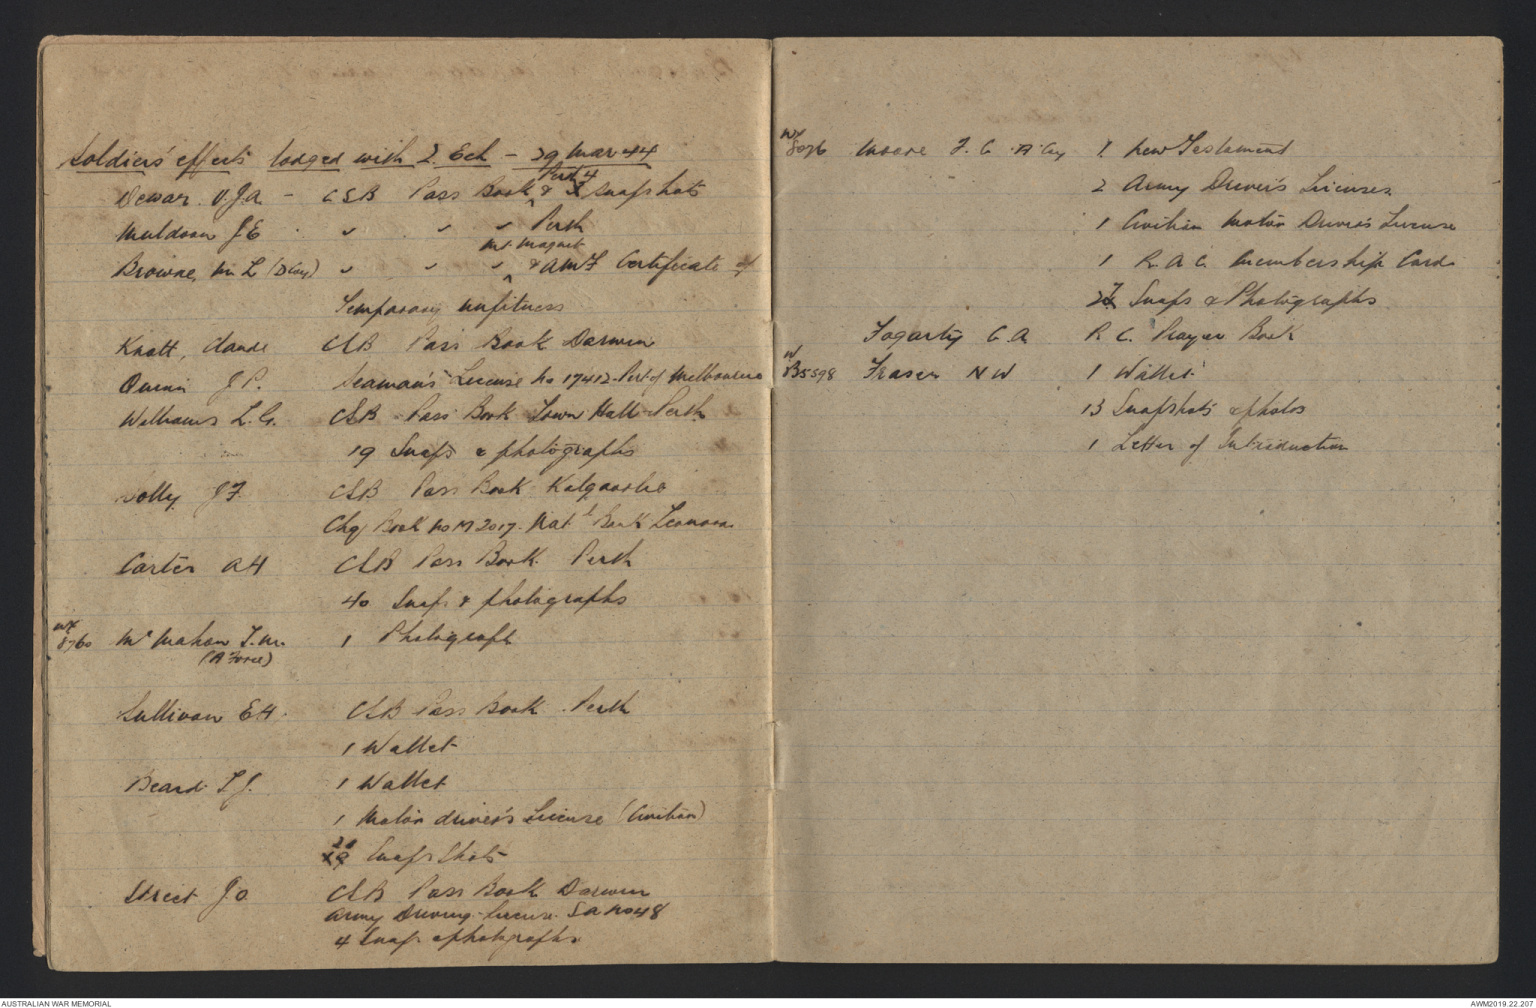 Soldiers' effects lodged with 2. Ech - 29 Mar 44
Dewar. V.J.A. - CSB Pass Book Perth & 4 Snapshots
Muldoon J E " " " Perth
Browne, M L (D Coy) " " " Mt. Magnet & AMF Certificate of
Temporary unfitness
Knott, Claude CSB Pass Book Darwin
Quinn J P. Seaman's License No 17412 - Port of Melbourne
Williams L. G. CSB Pass Book Town Hall - Perth
19 Snaps & photographs
Solly J F. CSB Pass Book Kalgoorlie
Chq Book No M 2017. Natl Bank
Carter A H CSB Pass Book. Perth
40 Snaps & photographs
WX
8760 Mc Mahon T. M. 1 Photograph
(A Force)
Sullivan E H. CSB Pass Book. Perth
1 Wallet
Beard. T J. 1 Wallet
1 Motor driver's License (Civilian)
20 Snap Shots
Street J. O. CSB Pass Book Darwin
Army Driving License. SA No 48
4 Snaps & photographs
WX
8076 Moore F. C. A Coy 1. New Testament
2 Army Driver's Licenses
1 Civilian Motor Driver's License
1 R. A. C. Membership Card
27 Snaps & Photographs
Fogarty C. A R C. Prayer Book
W
B5598 Fraser N W 1 Wallet
13 Snapshots & photos
1 Letter of Introduction
AUSTRALIAN WAR MEMORIAL
AWM2019.22.207